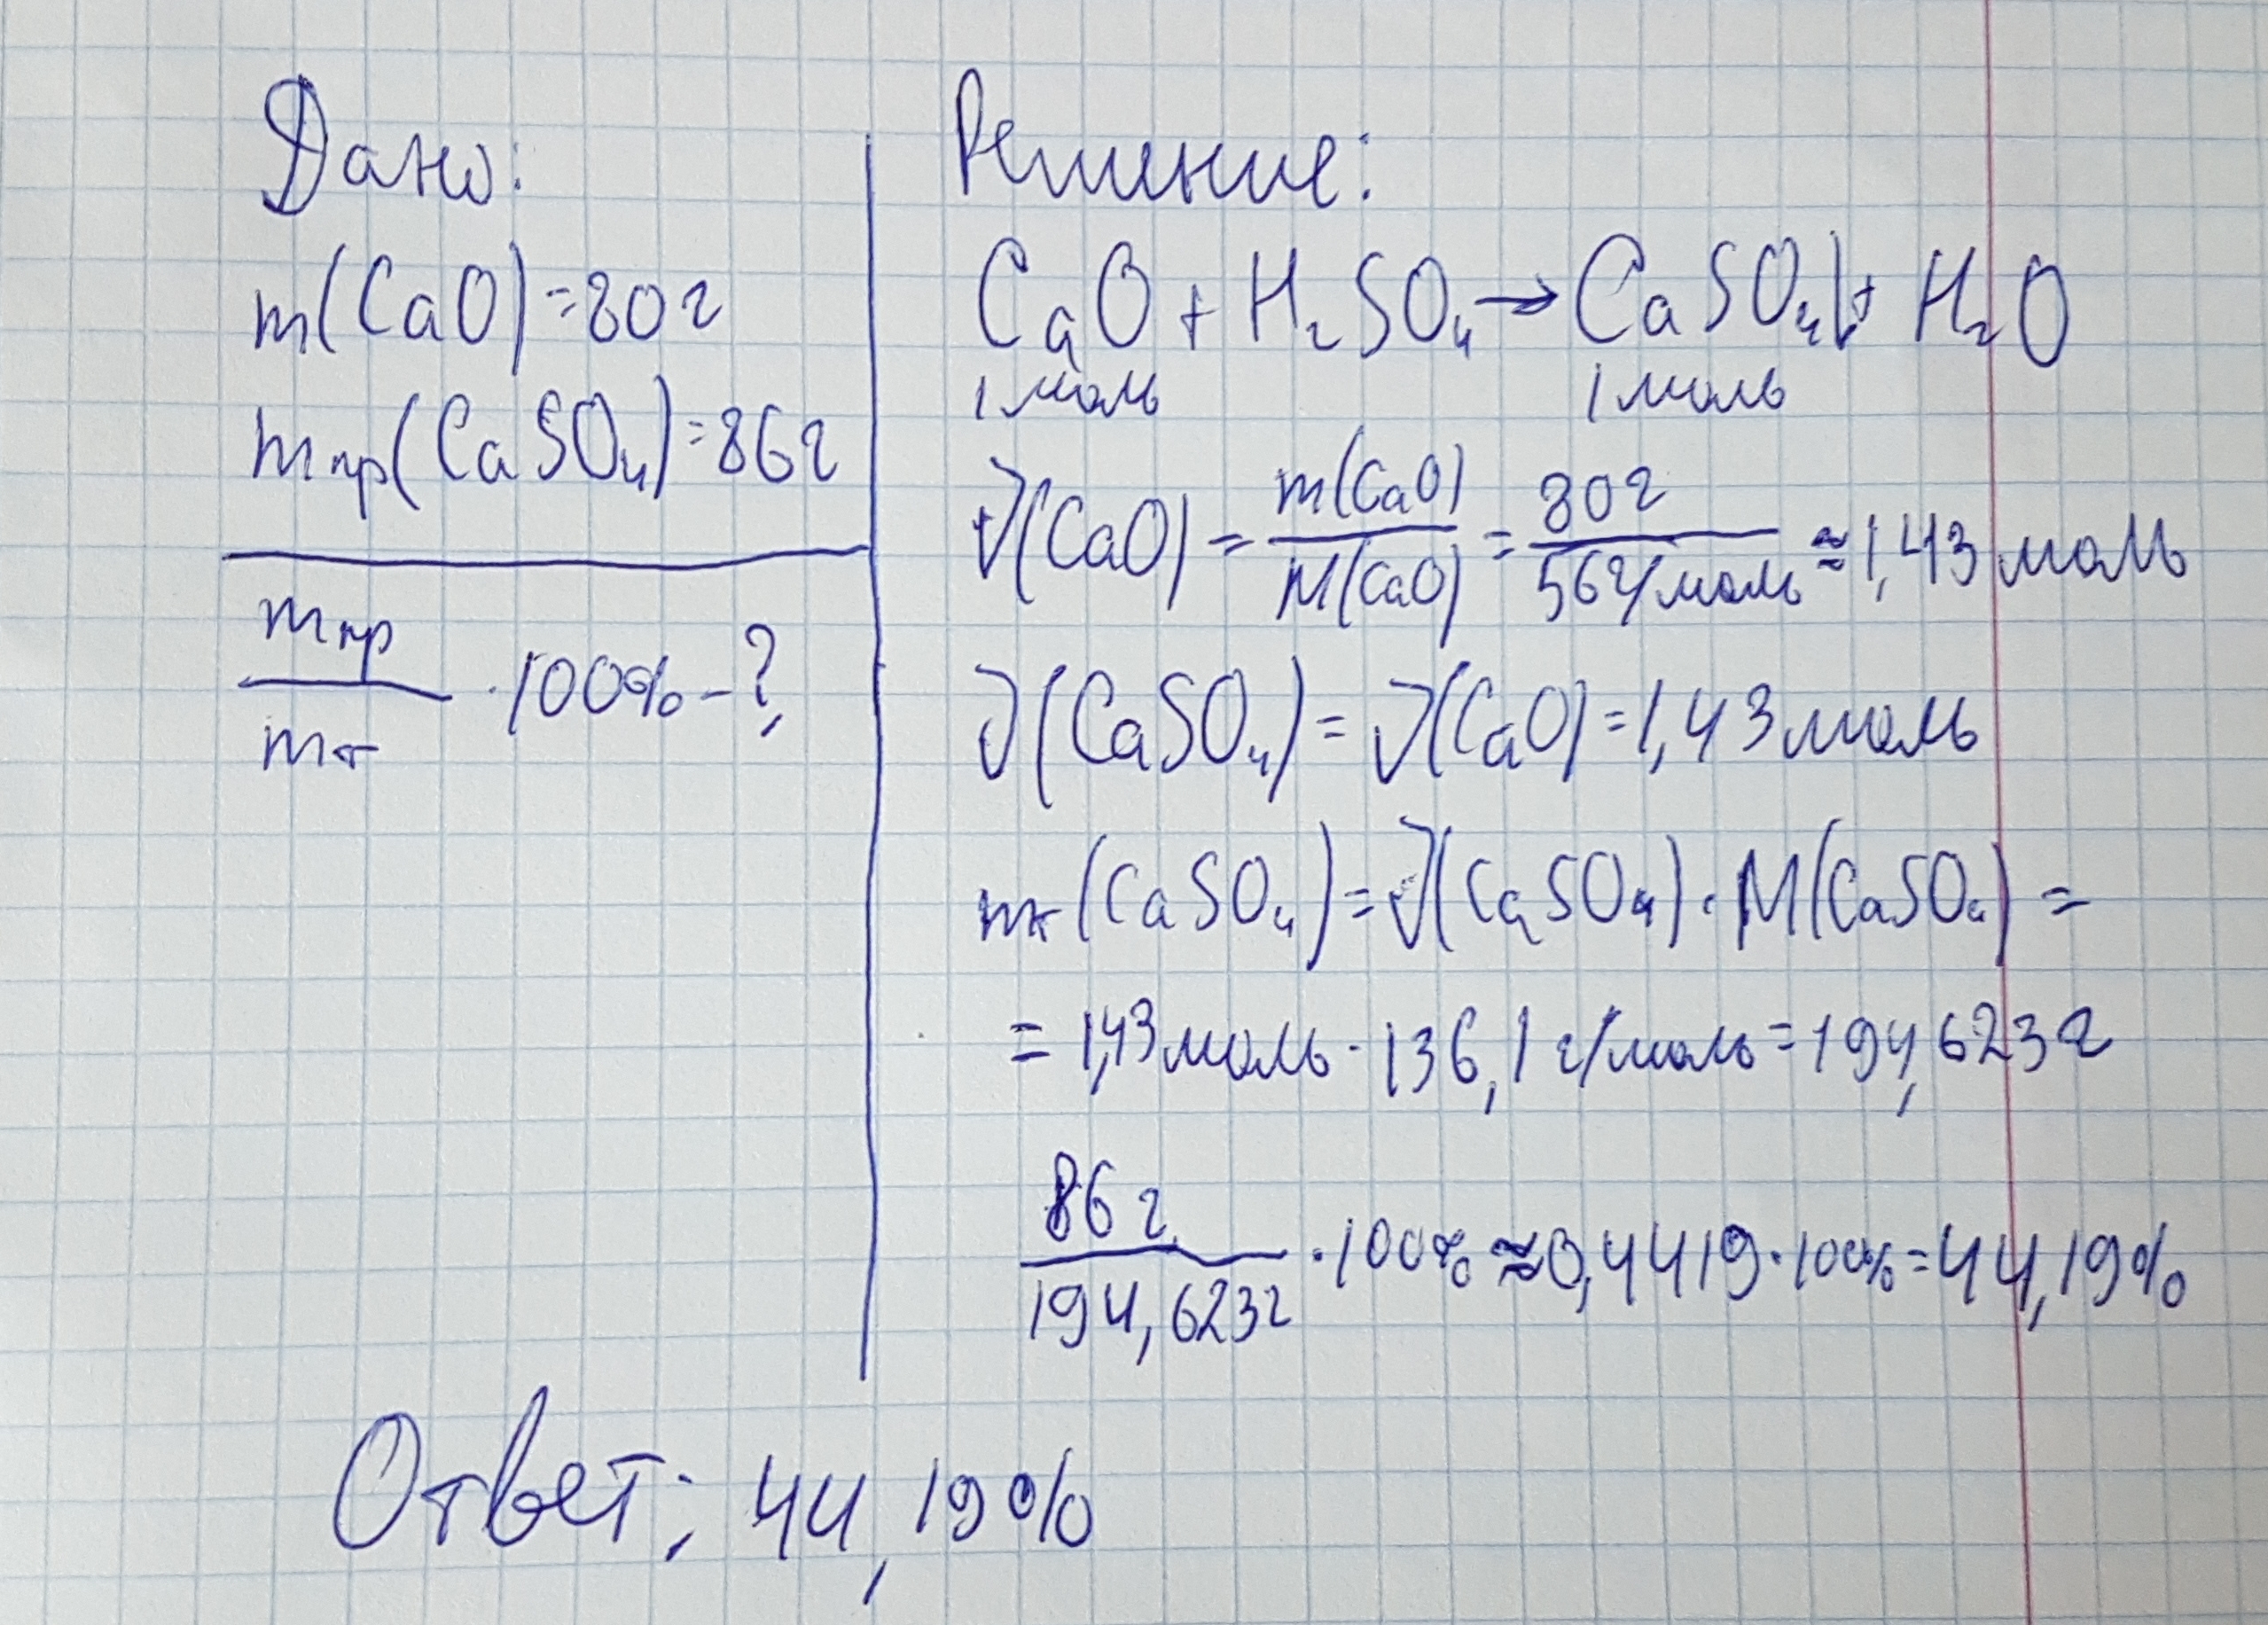 Дано:
m(CaO)=80г
mпр(CaSO₄)=86г
mпр/mт ·100%-?
Решение:
CaO+H₂SO₄→CaSO₄↓+H₂O
1моль 1моль
ν(CaO)=m(CaO)/M(CaO)=80г/56г/моль≈1,43моль
ν(CaSO₄)=ν(CaO)=1,43моль
mт(CaSO₄)=ν(CaSO₄)·M(CaSO₄)=
=1,43моль·136,1г/моль=194,623г
86г/194,623г·100%≈0,4419·100%=44,19%
Ответ: 44,19%